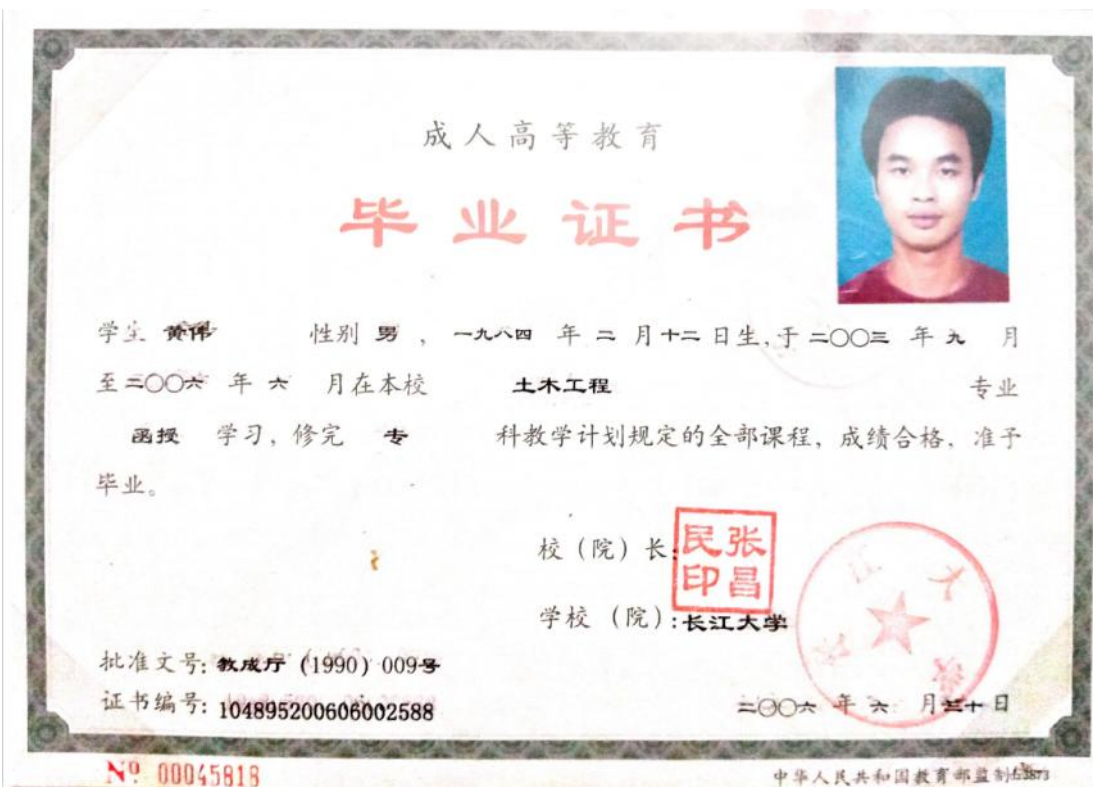 成人高等教育
毕业证书
学生 黄伟 性别 男 , 一九八四 年 二 月 十二 日生,于 二〇〇三 年 九 月
至 二〇〇六 年 六 月在本校 土木工程 专业
函授 学习, 修完 专 科教学计划规定的全部课程, 成绩合格, 准予
毕业。
校（院）长:
张昌民印
学校 （院）: 长江大学
批准文号: 教成厅 (1990) 009号
证书编号: 104895200606002588
二〇〇六 年 六 月 三十 日
Nº 00045818
中华人民共和国教育部监制